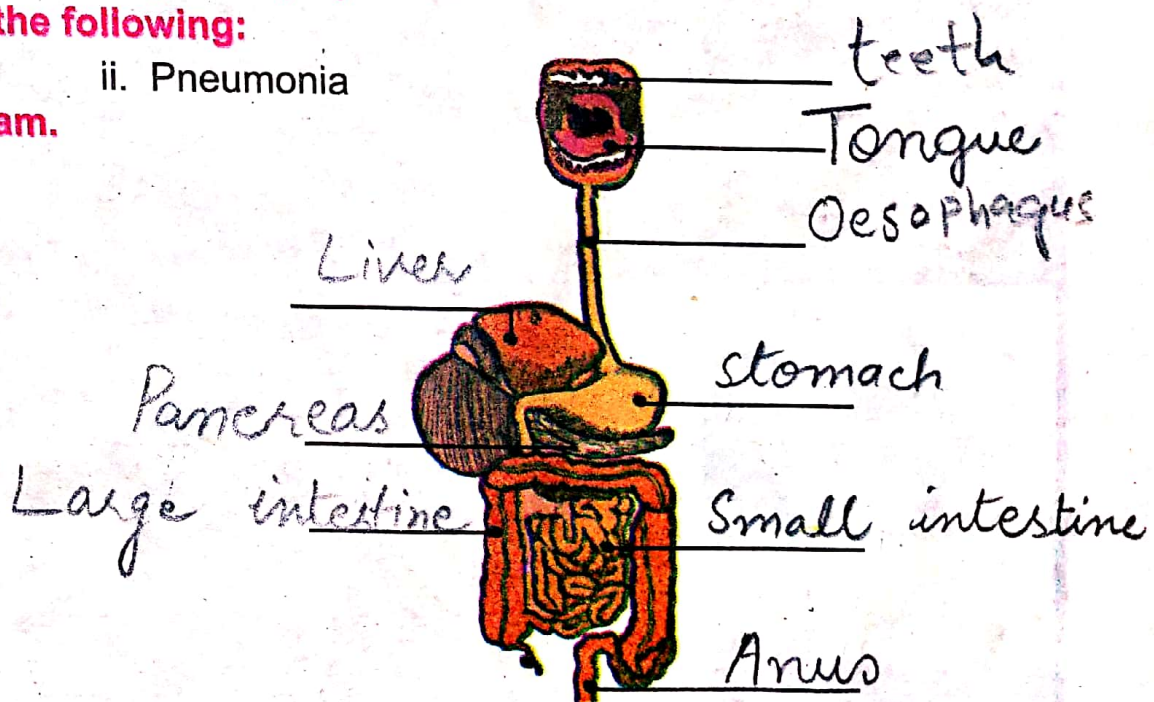 the following:
ii. Pneumonia
am.
teeth
Tongue
Oesophagus
Liver
stomach
Pancreas
Large intestine
Small intestine
Anus